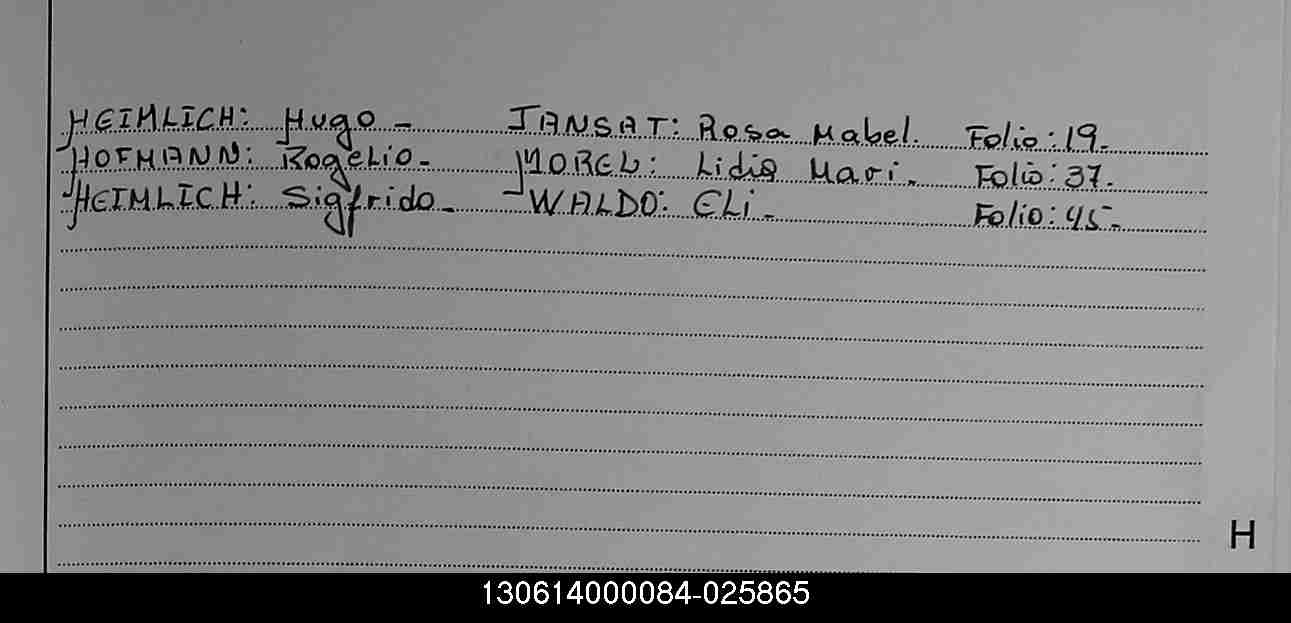 HEIMLICH: Hugo - JANSAT: Rosa Mabel. Folio: 19.-
HOFMANN: Rogelio.- MOREL: Lidia Mari. Folio: 37.-
HEIMLICH: Sigfrido.- WALDO: Eli.- Folio: 45.-
H
130614000084-025865